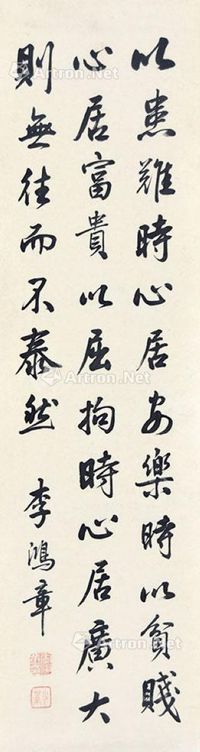 以患難時心居安樂時以貧賤
心居富貴以屈拘時心居廣大
則無往而不泰然
李鴻章
Artron.Net
Artron.Net
Artron.Net